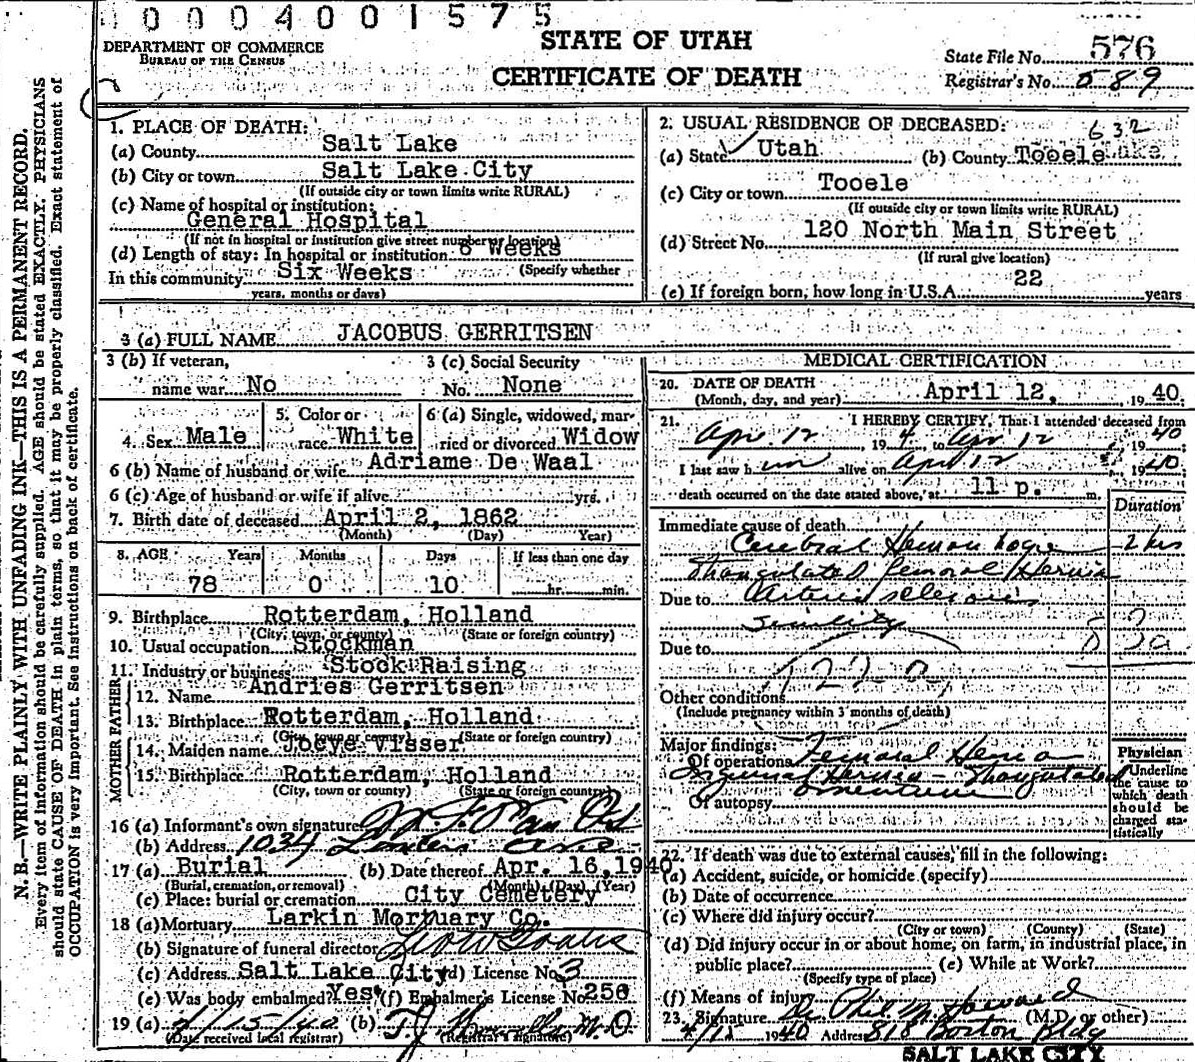 00004001575
DEPARTMENT OF COMMERCE
BUREAU OF THE CENSUS
STATE OF UTAH
CERTIFICATE OF DEATH
State File No. 576
Registrar's No. 589
N. B.—WRITE PLAINLY WITH UNFADING INK—THIS IS A PERMANENT RECORD.
Every item of information should be carefully supplied. AGE should be stated EXACTLY. PHYSICIANS
should state CAUSE OF DEATH in plain terms, so that it may be properly classified. Exact statement of
OCCUPATION is very important. See instructions on back of certificate.
1. PLACE OF DEATH:
(a) County Salt Lake
(b) City or town Salt Lake City
(If outside city or town limits write RURAL)
(c) Name of hospital or institution:
General Hospital
(If not in hospital or institution give street number or location)
(d) Length of stay: In hospital or institution 6 Weeks
(Specify whether
In this community Six Weeks
years, months or days)
2. USUAL RESIDENCE OF DECEASED:
632
(a) State Utah (b) County Tooele
(c) City or town Tooele
(If outside city or town limits write RURAL)
(d) Street No. 120 North Main Street
(If rural give location)
(e) If foreign born, how long in U.S.A. 22 years
3 (a) FULL NAME JACOBUS GERRITSEN
3 (b) If veteran,
name war No
3 (c) Social Security
No. None
4. Sex Male
5. Color or
race White
6 (a) Single, widowed, mar-
ried or divorced Widow
6 (b) Name of husband or wife Adriame De Waal
6 (c) Age of husband or wife if alive yrs.
7. Birth date of deceased April 2, 1862
(Month) (Day) (Year)
8. AGE Years Months Days If less than one day
78 0 10 hr. min.
9. Birthplace Rotterdam, Holland
(City, town, or county) (State or foreign country)
10. Usual occupation Stockman
11. Industry or business Stock Raising
FATHER
12. Name Andries Gerritsen
13. Birthplace Rotterdam, Holland
(City, town or county) (State or foreign country)
MOTHER
14. Maiden name Jocye Visser
15. Birthplace Rotterdam, Holland
(City, town or county) (State or foreign country)
16 (a) Informant's own signature
(b) Address 1034
17 (a) Burial (b) Date thereof Apr. 16, 1940
(Burial, cremation, or removal) (Month) (Day) (Year)
(c) Place: burial or cremation City Cemetery
18 (a) Mortuary Larkin Mortuary Co.
(b) Signature of funeral director
(c) Address Salt Lake City (d) License No. 3
(e) Was body embalmed? Yes (f) Embalmer's License No. 256
19 (a) 4/15/40 (b) M.D.
(Date received local registrar) (Registrar's signature)
MEDICAL CERTIFICATION
20. DATE OF DEATH
(Month, day, and year) April 12, 1940
21. I HEREBY CERTIFY, That I attended deceased from
Apr. 12 194 to Apr 12 1940
I last saw him alive on Apr 12 1940
death occurred on the date stated above, at 11 p. m.
Duration
Immediate cause of death
Cerebral Hemorrhage 2 hrs
Strangulated femoral Hernia
Due to Arteriosclerosis
senility
Due to
Other conditions
(Include pregnancy within 3 months of death)
Major findings:
Of operations Femoral Hernia
Inguinal Hernia - Strangulated
omentum
Of autopsy
Physician
Underline
the cause to
which death
should be
charged sta-
tistically
22. If death was due to external causes, fill in the following:
(a) Accident, suicide, or homicide (specify)
(b) Date of occurrence
(c) Where did injury occur?
(City or town) (County) (State)
(d) Did injury occur in or about home, on farm, in industrial place, in
public place? (e) While at Work?
(Specify type of place)
(f) Means of injury
23. Signature Dr Phil M. Howard (M.D. or other)
4/15 1940 Address 818 Boston Bldg
SALT LAKE CITY